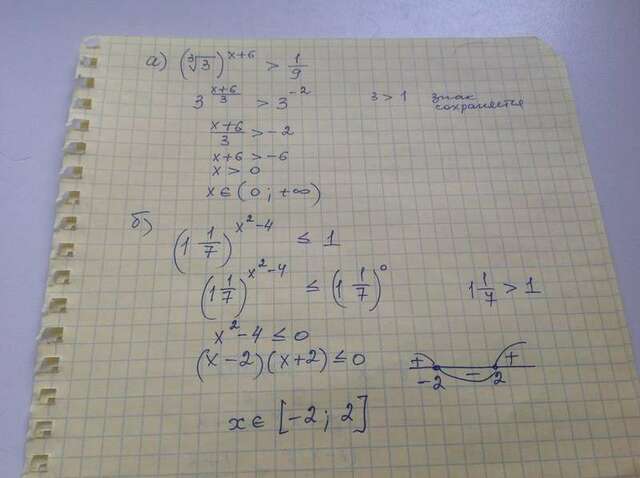 а) (∛3)^(x+6) > 1/9
3^((x+6)/3) > 3^(-2) 3 > 1 знак сохраняется
(x+6)/3 > -2
x+6 > -6
x > 0
x ∈ (0; +∞)
б) (1 1/7)^(x²-4) ≤ 1
(1 1/7)^(x²-4) ≤ (1 1/7)^0 1 1/7 > 1
x² - 4 ≤ 0
(x-2)(x+2) ≤ 0 + - +
-2 2
x ∈ [-2; 2]